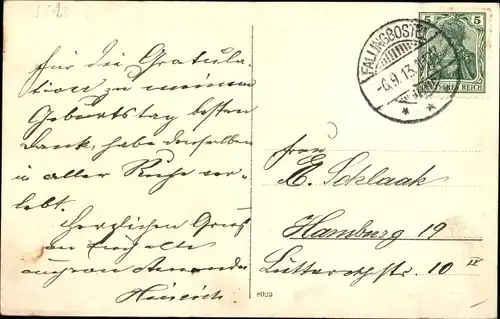 5
5
DEUTSCHES REICH
FALLINGBOSTEL
-6.9.13.
* *
für die Gratula-
tion zu meinem
Geburtstag besten
Dank, habe denselben
in aller Ruhe ver-
lebt.
Herzlichen Gruß
an Euch alle
Heinrich
Frau
E. Schlaak
Hamburg 19
Lutterothstr. 10 III
8023